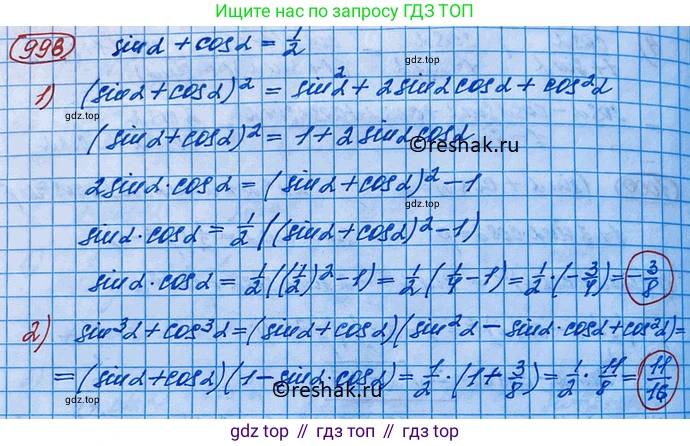 Ищите нас по запросу ГДЗ ТОП
998 sinα + cosα = 1/2
1) (sinα + cosα)² = sin²α + 2 sinα cosα + cos²α
gdz.top
(sinα + cosα)² = 1 + 2 sinα cosα
©reshak.ru
2sinα · cosα = (sinα + cosα)² - 1
gdz.top
sinα · cosα = 1/2 ((sinα + cosα)² - 1)
sinα · cosα = 1/2 ((1/2)² - 1) = 1/2 (1/4 - 1) = 1/2 · (-3/4) = -3/8
2) sin³α + cos³α = (sinα + cosα)(sin²α - sinα · cosα + cos²α) =
= (sinα + cosα)(1 - sinα · cosα) = 1/2 · (1 + 3/8) = 1/2 · 11/8 = 11/16
gdz.top
©reshak.ru
gdz top // гдз топ // gdz top